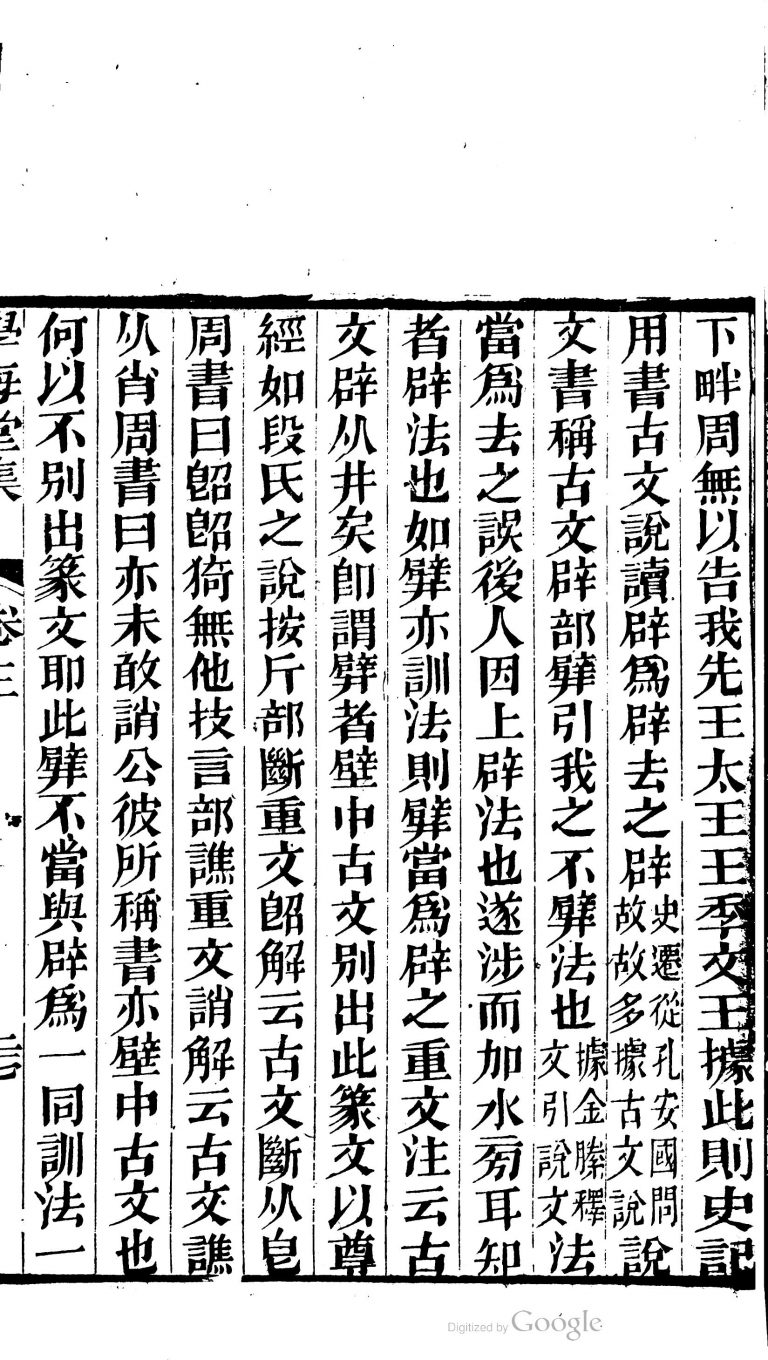 下畔周無以告我先王太王王季文王據此則史記
用書古文說讀辟爲辟去之辟史遷從孔安國問故故多據古文說說
文書稱古文辟部擘引我之不擘法也據金縢釋文引說文法
當爲去之誤後人因上辟法也遂涉而加水旁耳知
者辟法也如擘亦訓法則擘當爲辟之重文注云古
文辟从井矣卽謂擘者壁中古文別出此篆文以尊
經如段氏之說按斤部斷重文𠸿解云古文斷从皀
周書曰𠸿𠸿猗無他技言部譙重文誚解云古文譙
从肖周書曰亦未敢誚公彼所稱書亦壁中古文也
何以不別出篆文耶此擘不當與辟爲一同訓法一
學海堂集 卷三
Digitized by Google